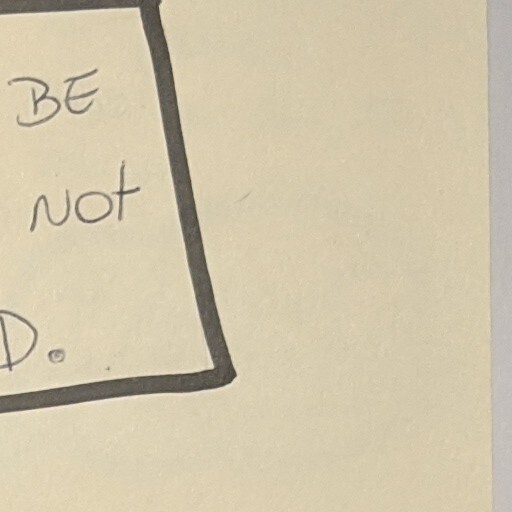 BE
NOt
D.